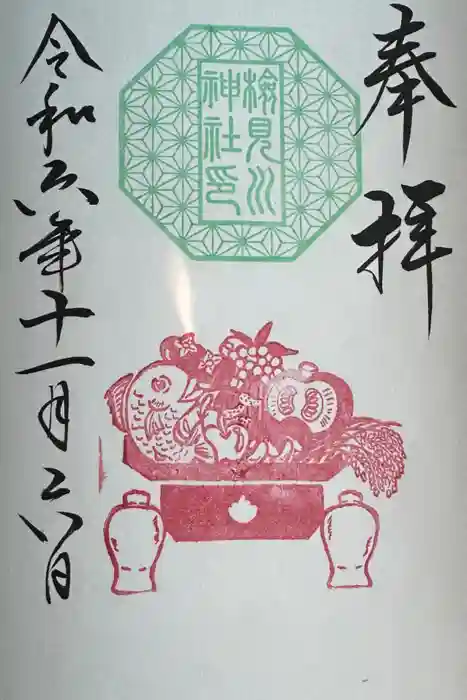 奉拝
検見川
神社印
令和六年十一月二八日